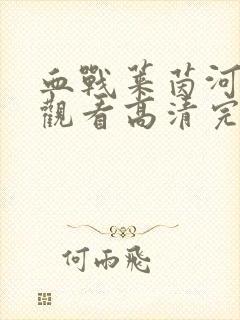 血戰萊茵河
觀看高清完
何雨飛